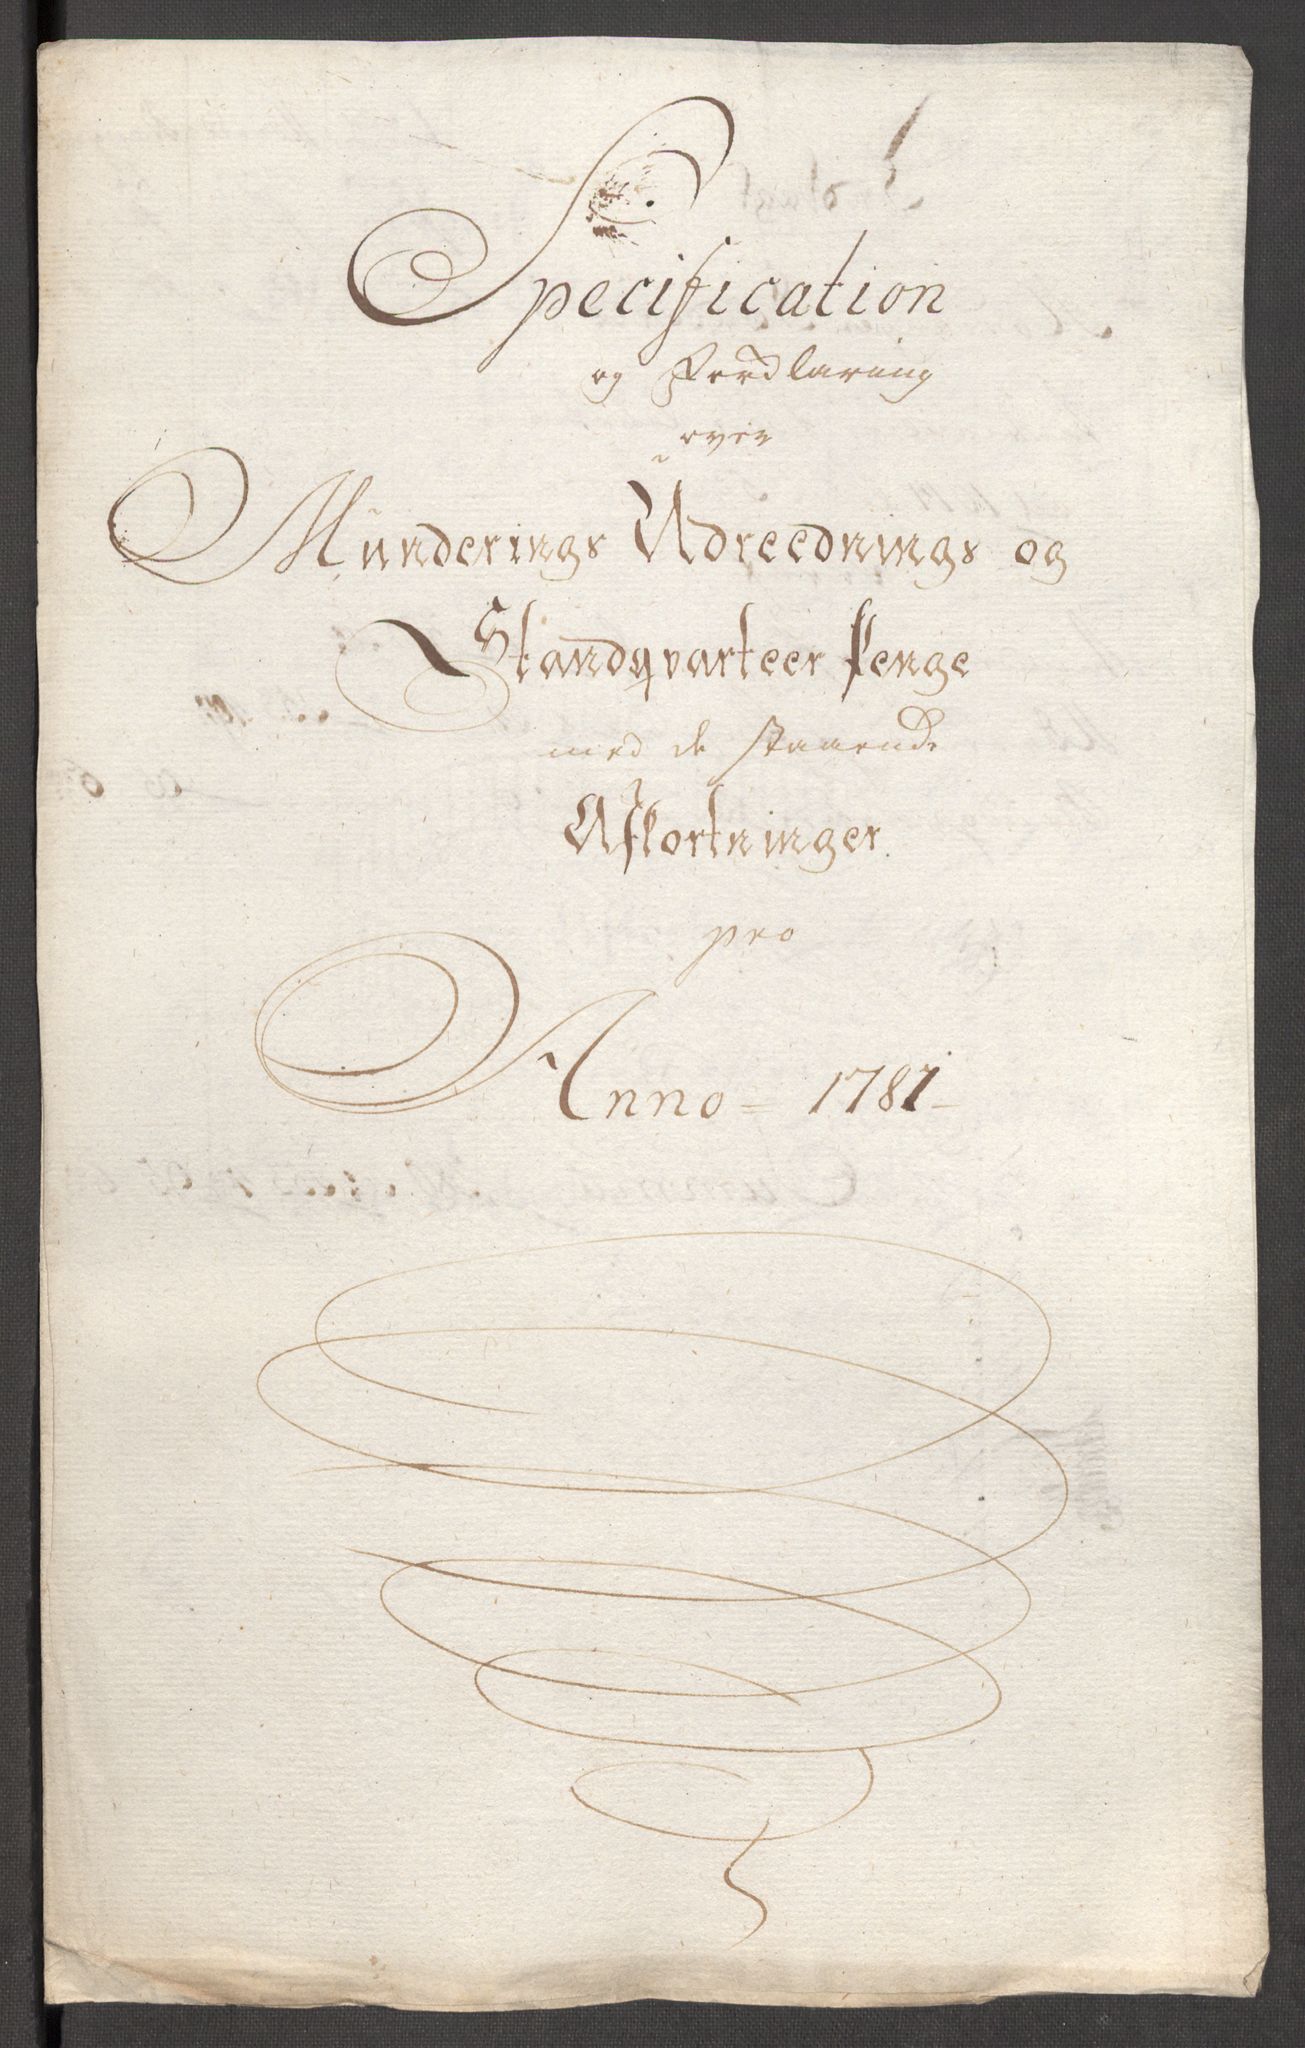 Specification
og Forclaring
over
Munderings Udreednings og
Standqvarteer Penge
med de staaende
Afkortninger
pro
Anno = 1781